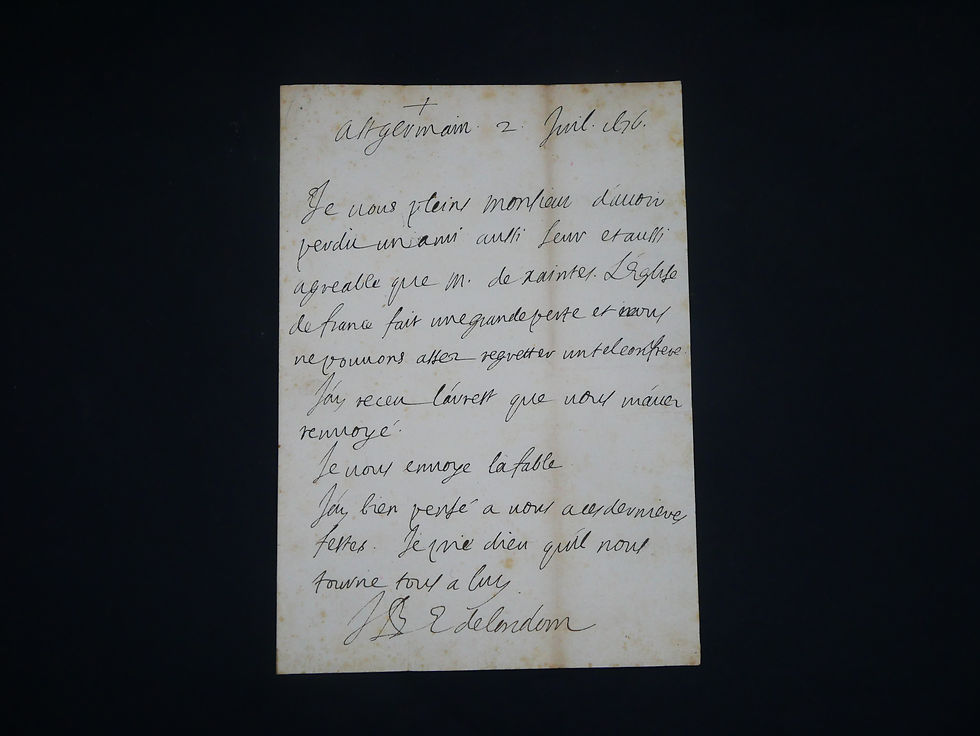 +
A St germain. 2. Juil. 1676.
Je vous pleins monsieur d'auoir
perdu un ami aussi seur et aussi
agreable que M. de xaintes. L'Eglise
de france fait une grande perte et nous
ne pouuons assez regretter un tel confrere.
J'ay receu l'arrest que vous m'auez
renuoyé.
Je vous enuoye la fable
J'ay bien pensé a vous a ces dernieres
festes. Je prie dieu qu'il nous
tourne tous a luy.
JB E de Condom